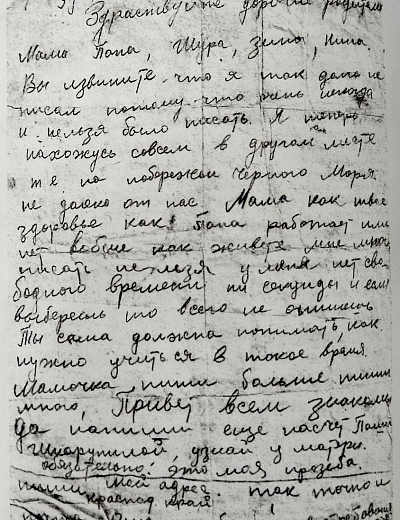 Здраствуйте дорогие родители
Мама Папа, Шура, Зина, Нина.
Вы извините что я так долго не
писал потому что очень некогда
и нельзя было писать. Я теперь
нахожусь совсем в другом месте
т. е. на побережьи Черного Моря
не далеко от нас. Мама как твое
здоровье как Папа работает или
нет вобще как живете мне много
писать не лзя у меня нет сво-
бодного времени ни секунды и если
выбереш то всего не опишеш
Ты сама должна понимать, как
нужно учиться в такое время.
Мамочка, пиши больше писем
много, Привет всем знакомым
да напиши еще насчет Пани
узнай у матери
обязательно. это моя прозьба.
пиши мой адрес. так точно и
краснод край